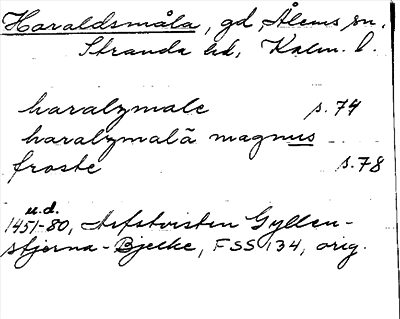 Haraldsmåla, gd, Ålems sn.
Stranda hd, Kalm. l.
haralzmale s. 74
haralzmalã magnus
froste s. 78
u.d.
1451-80, Avskrift Gyllen-
stjerna-Bjelke, FSS 134, orig.